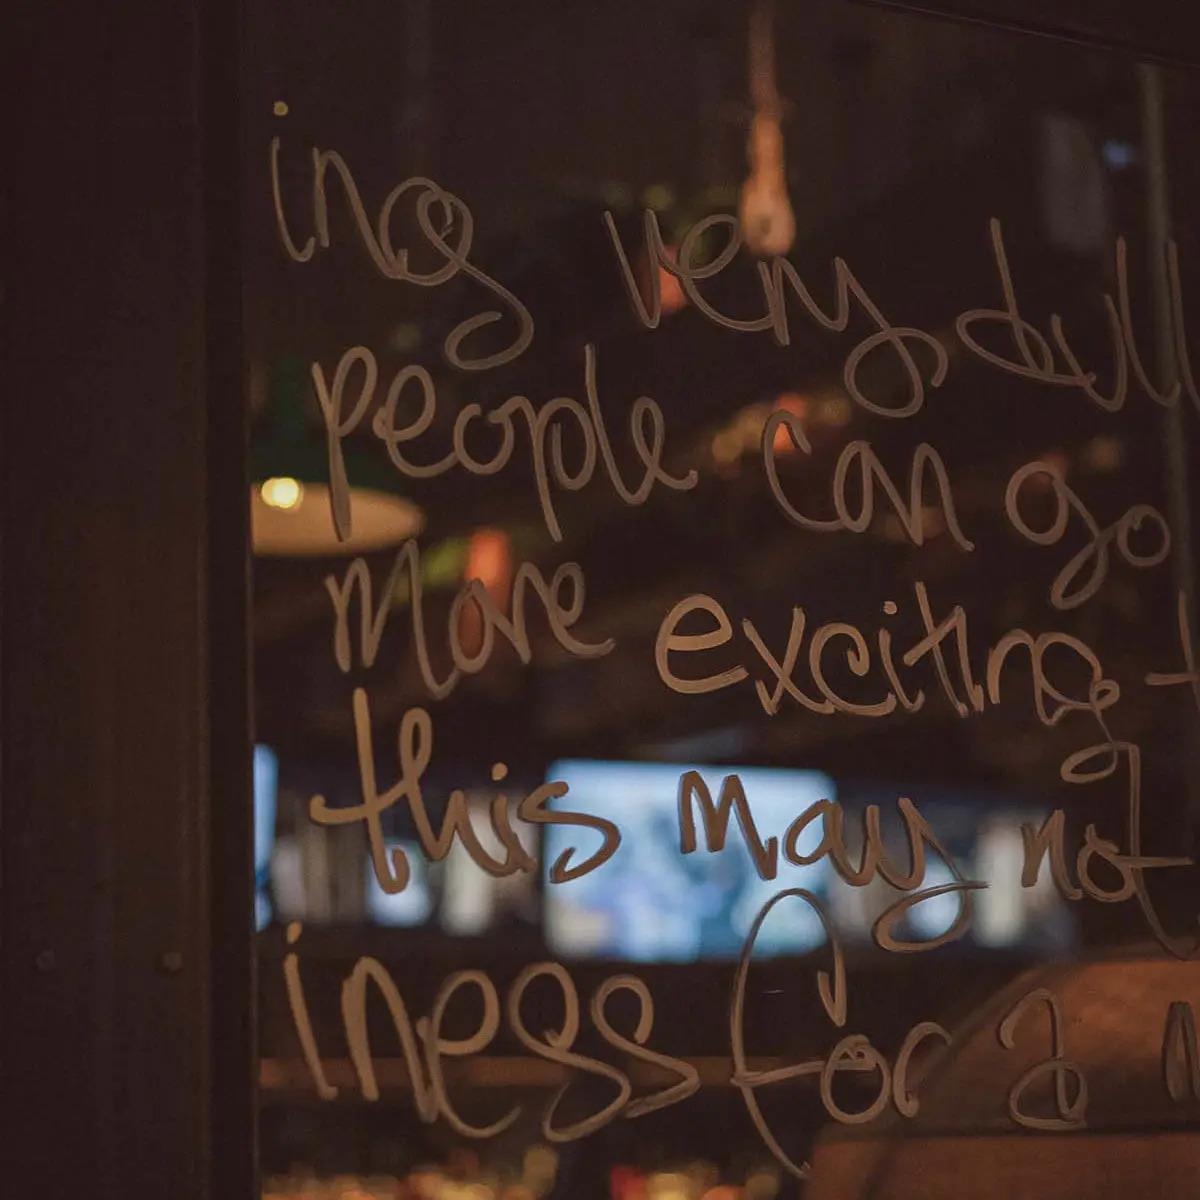 ing very dull
people can go
More exciting t
this may not
iness for a